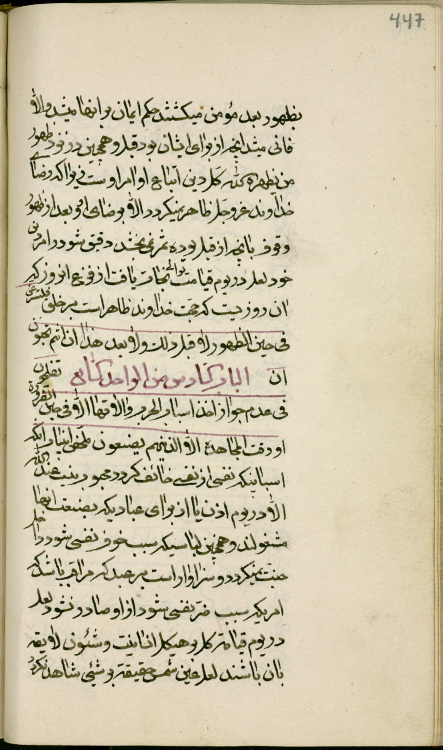 447
بظهور بعد مؤمن میکشتند حکم ایمان بر انها میشد والا
فانی میشد انچه از برای ایشان بود قبل و همچنین در نزد ظهور
من یظهره الله کل دین اتباع اوامر اوست زیراکه رضای
خداوند عز و جل ظاهر نمیگردد الا برضای او و بعد از ظهور
وقوف بانچه از قبل بوده ثمر نمی بخشد دقیق شو در امر دین
خود لعل در یوم قیامت توانی نجات یافت از فزع انروز کبیر
ان روزیست که حجت خداوند ظاهر است بر خلق
فی حین الظهور لا و قبل ذلک ولا و بعد هذا ان انتم تحبون
ان تفلحون الباب السادس من الواحد السابع
فی عدم جواز اخذ اسباب الحرب والاتها الا فی حین الضرورة
او وقت المجاهدة الا الذینهم یصنعون ملخص این باب انکه
اسبابیکه نفسی از نفسی خائف گردد محبوب نیست عند الله
الا در یوم اذن یا از برای عبادیکه بصنعت انها
مشغولند و همچنین لباسیکه سبب خوف نفسی شود داخل
جنت نمیگردد و سزاوار است بر عبد که مراقب باشد که
امریکه سبب ضر نفسی شود از او صادر نشود لعل
در یوم قیامة کل بر هیکل انسانیت و شئون لایقه
بان باشند لعل عین شمس حقیقة بر شیئی شاهد نگردد